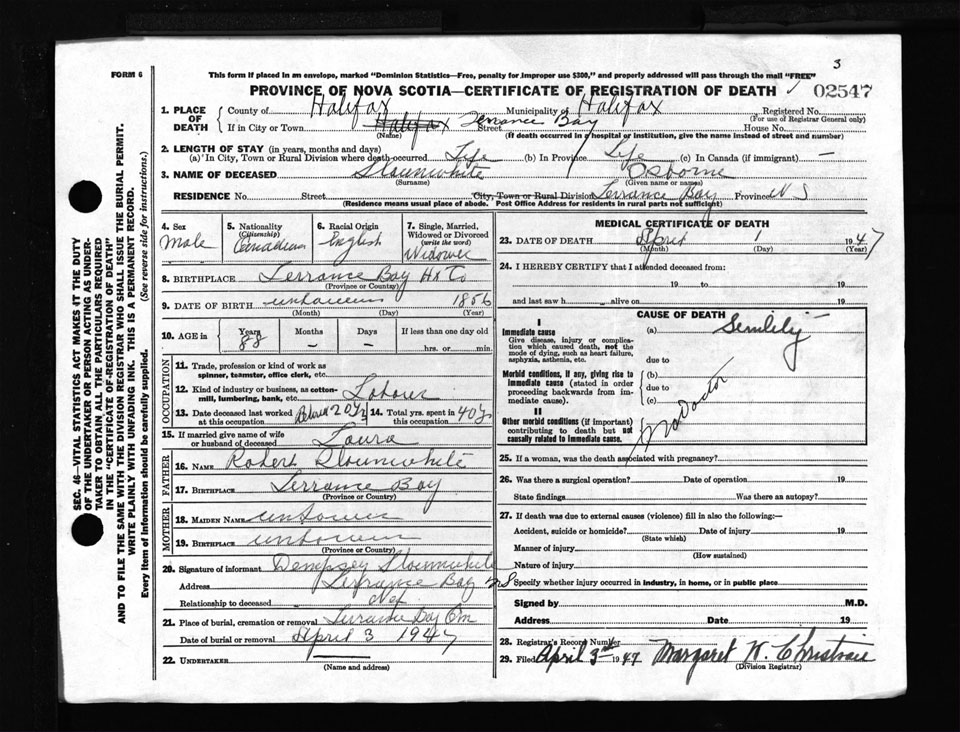 3
FORM 6
This form if placed in an envelope, marked "Dominion Statistics—Free, penalty for improper use $300," and properly addressed will pass through the mail "FREE"
PROVINCE OF NOVA SCOTIA—CERTIFICATE OF REGISTRATION OF DEATH 02547
1. PLACE OF DEATH County of Halifax Municipality of Halifax Registered No. (For use of Registrar General only)
If in City or Town Halifax Terrance Bay Street House No.
(Name) (If death occurred in a hospital or institution, give the name instead of street and number)
2. LENGTH OF STAY (in years, months and days)
(a) In City, Town or Rural Division where death occurred Life (b) In Province Life (c) In Canada (if immigrant) —
3. NAME OF DECEASED Slounwhite Osborne
(Surname) (Given name or names)
RESIDENCE No. Street City, Town or Rural Division Terrance Bay Province N S
(Residence means usual place of abode. Post Office Address for residents in rural parts not sufficient)
4. Sex Male
5. Nationality (Citizenship) Canadian
6. Racial Origin English
7. Single, Married, Widowed or Divorced (write the word) Widower
8. BIRTHPLACE Terrance Bay Hx Co
(Province or Country)
9. DATE OF BIRTH unknown 1856
(Month) (Day) (Year)
10. AGE in Years 88 Months – Days – If less than one day old hrs. or min.
OCCUPATION
11. Trade, profession or kind of work as spinner, teamster, office clerk, etc.
12. Kind of industry or business, as cotton-mill, lumbering, bank, etc. Labour
13. Date deceased last worked at this occupation 20 yrs 14. Total yrs. spent in this occupation 40 yrs
15. If married give name of wife or husband of deceased Laura
FATHER
16. NAME Robert Slounwhite
17. BIRTHPLACE Terrance Bay
(Province or Country)
MOTHER
18. MAIDEN NAME unknown
19. BIRTHPLACE unknown
(Province or Country)
20. Signature of informant Dempsey Slounwhite
Address Terrance Bay N S
Relationship to deceased Nef
21. Place of burial, cremation or removal Terrance Bay Cm
Date of burial or removal April 3 1947
22. UNDERTAKER
(Name and address)
MEDICAL CERTIFICATE OF DEATH
23. DATE OF DEATH April 1 1947
(Month) (Day) (Year)
24. I HEREBY CERTIFY that I attended deceased from:
19 to 19
and last saw h alive on 19
CAUSE OF DEATH
I
Immediate cause (a) Senility
Give disease, injury or complication which caused death, not the mode of dying, such as heart failure, asphyxia, asthenia, etc. due to
Morbid conditions, if any, giving rise to immediate cause (stated in order proceeding backwards from immediate cause). (b) due to (c)
II
Other morbid conditions (if important) contributing to death but not causally related to immediate cause.
No Doctor
25. If a woman, was the death associated with pregnancy?
26. Was there a surgical operation? Date of operation 19
State findings Was there an autopsy?
27. If death was due to external causes (violence) fill in also the following:—
Accident, suicide or homicide? Date of injury 19
(State which)
Manner of injury
(How sustained)
Nature of injury
Specify whether injury occurred in industry, in home, or in public place
Signed by M.D.
Address Date 19
28. Registrar's Record Number
29. Filed April 3rd 1947 Margaret W. Christian
(Division Registrar)
SEC. 46—VITAL STATISTICS ACT MAKES IT THE DUTY
OF THE UNDERTAKER OR PERSON ACTING AS UNDER-
TAKER TO OBTAIN ALL THE PARTICULARS REQUIRED
IN THE "CERTIFICATE OF REGISTRATION OF DEATH"
AND TO FILE THE SAME WITH THE DIVISION REGISTRAR WHO SHALL ISSUE THE BURIAL PERMIT.
WRITE PLAINLY WITH UNFADING INK. THIS IS A PERMANENT RECORD.
Every item of information should be carefully supplied. (See reverse side for instructions.)